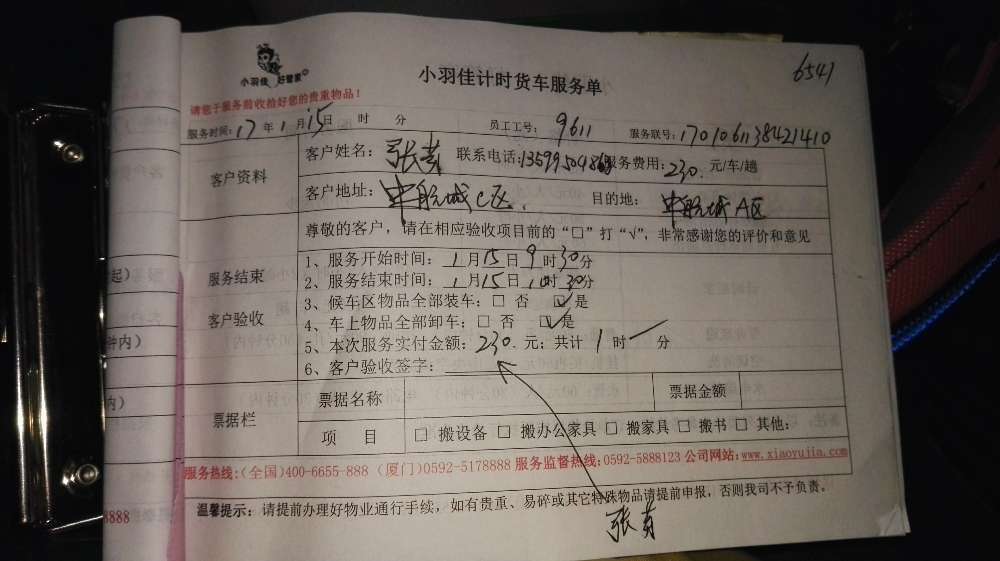 小羽佳 好管家
小羽佳计时货车服务单
6541
请您于服务前收拾好您的贵重物品！
服务时间：17年1月15日 时 分 员工工号： 9611 服务联号：1701061138421410
客户资料
客户姓名： 联系电话： 服务费用：230. 元/车/趟
客户地址：中航城C区. 目的地： 中航城A区
尊敬的客户，请在相应验收项目前的“□”打“√”，非常感谢您的评价和意见
服务结束
客户验收
1、服务开始时间：1月15日9时30分
2、服务结束时间：1月15日10时30分
3、候车区物品全部装车：□ 否 ☑是
4、车上物品全部卸车：□ 否 ☑是
5、本次服务实付金额：230. 元；共计 1 时 分
6、客户验收签字：
票据栏
票据名称 票据金额
项 目 □ 搬设备 □ 搬办公家具 □ 搬家具 □ 搬书 □ 其他：
服务热线：(全国)400-6655-888 (厦门)0592-5178888 服务监督热线：0592-5888123 公司网站：www.xiaoyujia.com
温馨提示：请提前办理好物业通行手续，如有贵重、易碎或其它特殊物品请提前申报，否则我司不予负责。